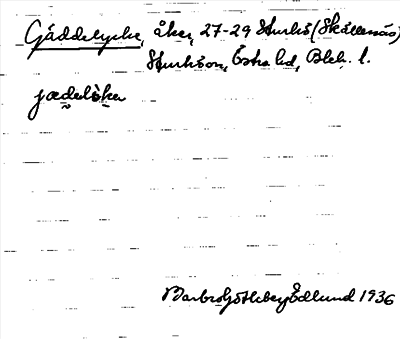 Gäddelycke, åker, 27-29 Sturkö (Skällenäs)
Sturkö sn, Östra hd, Blek. l.
jædelöker
Barbro Götheberg Edlund 1936